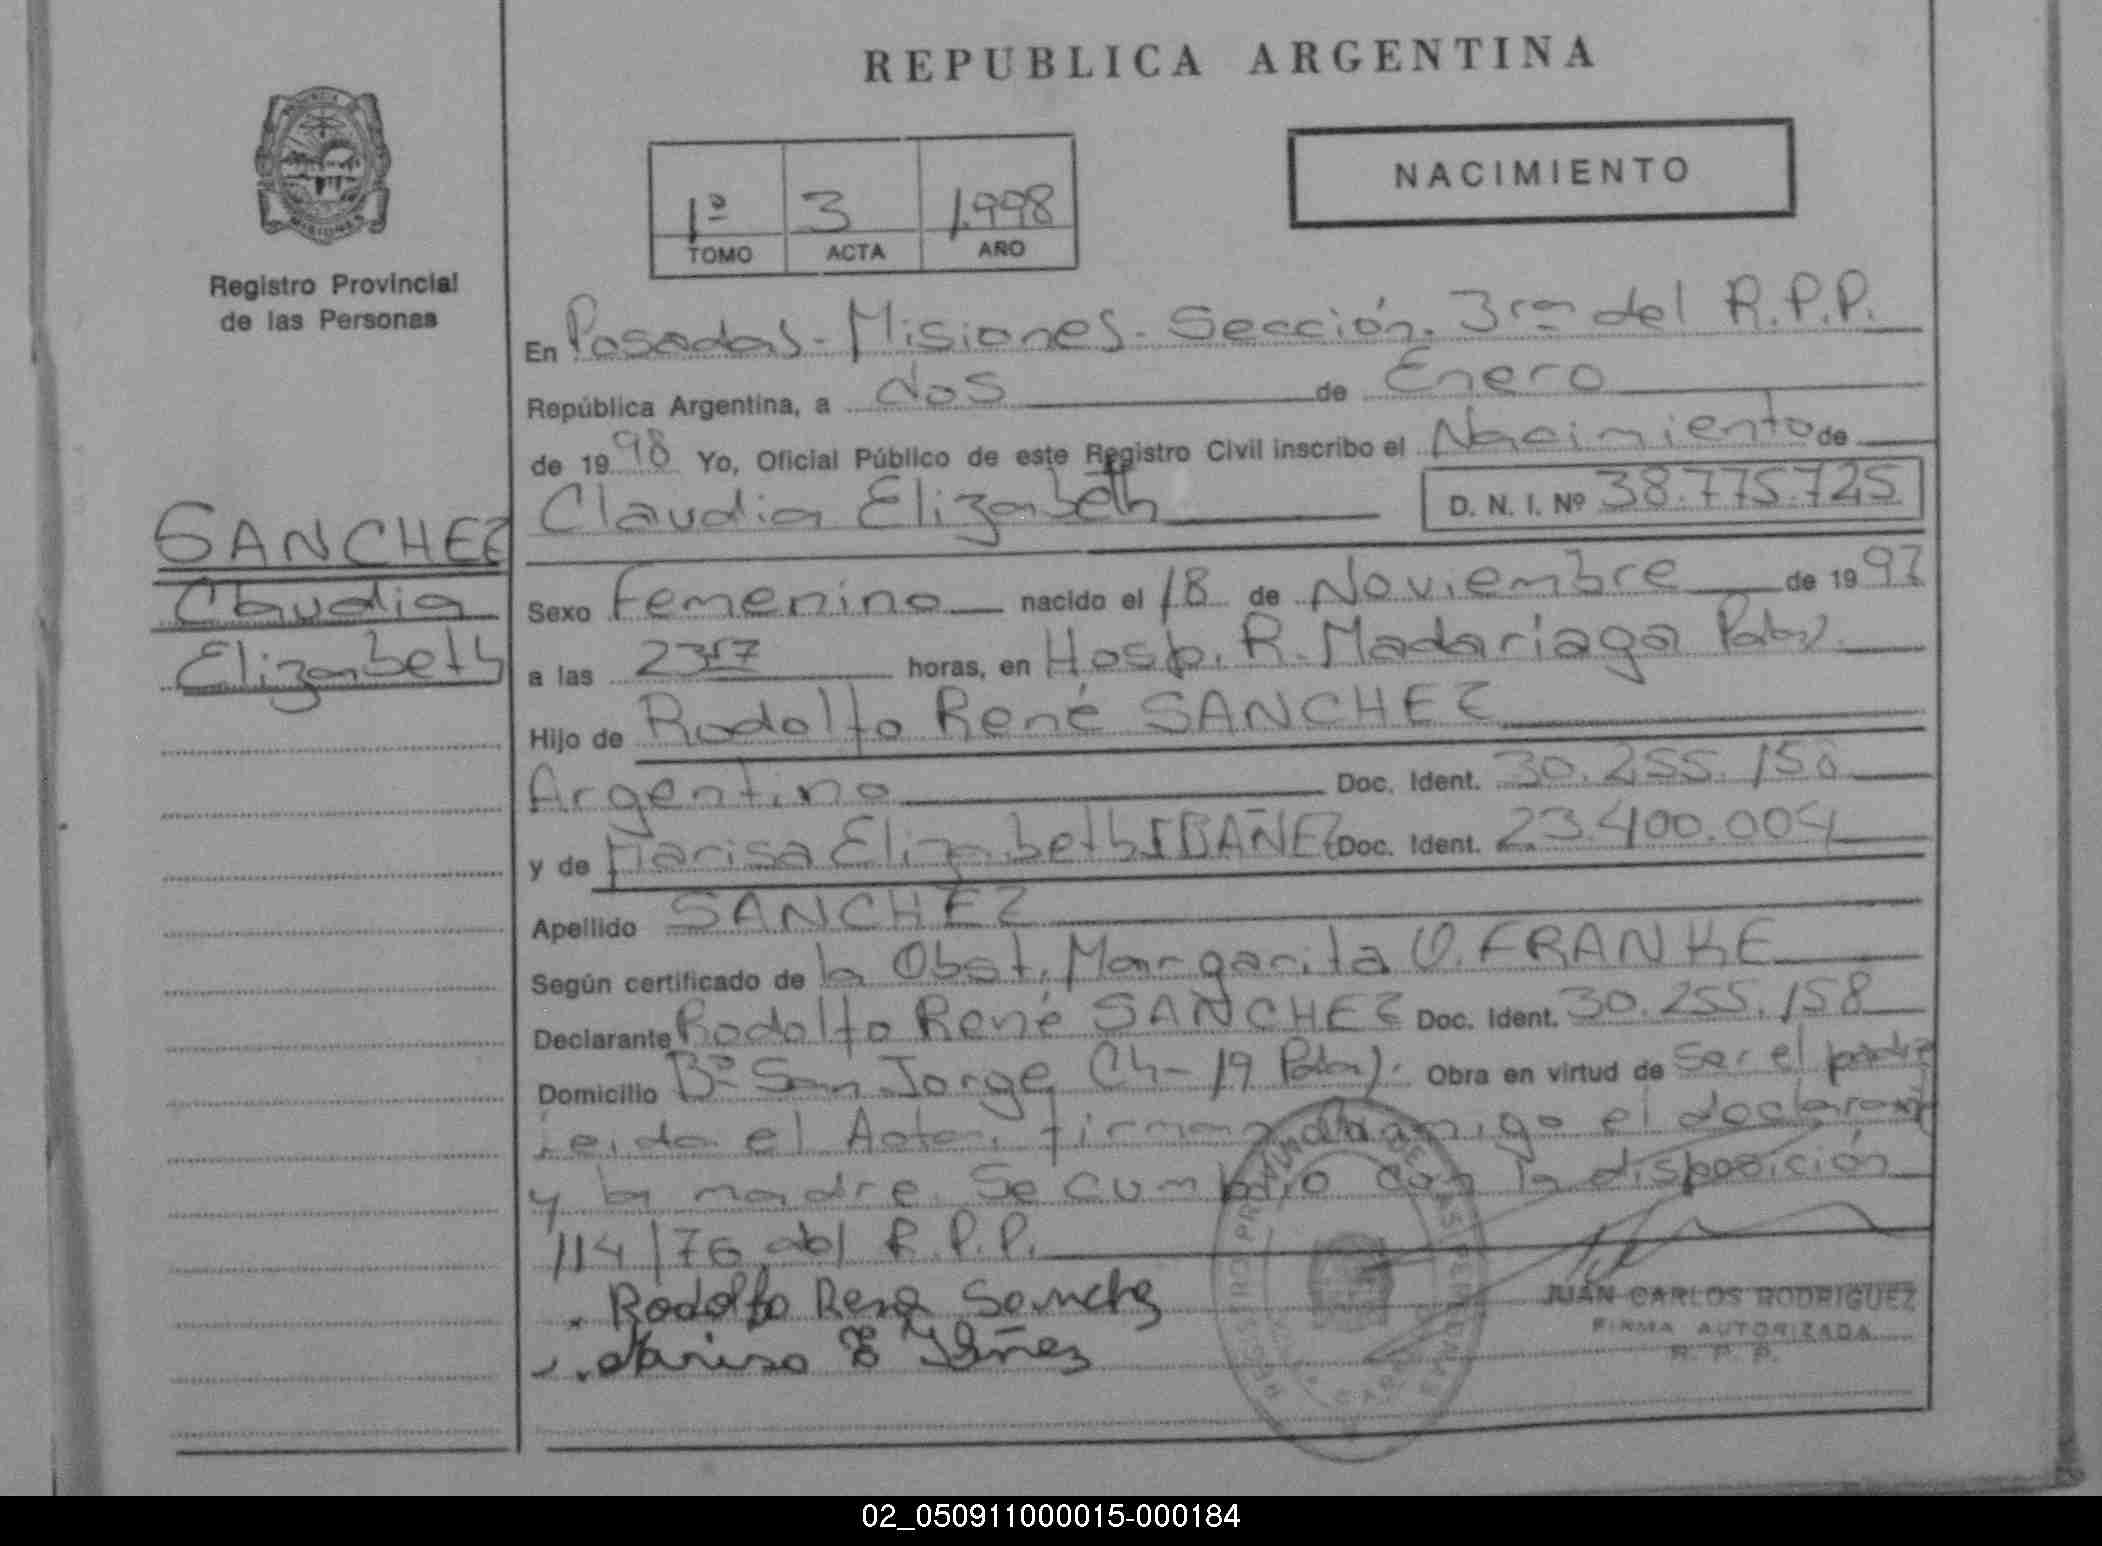 REPUBLICA ARGENTINA
PROVINCIA
MISIONES
Registro Provincial
de las Personas
NACIMIENTO
1º 3 1.998
TOMO ACTA AÑO
En Posadas - Misiones - Sección 3ra del R.P.P.
República Argentina, a dos de Enero
de 1998 Yo, Oficial Público de este Registro Civil inscribo el Nacimiento de
Claudia Elizabeth D. N. I. Nº 38.775.725
SANCHEZ
Claudia
Elizabeth
Sexo Femenino nacido el 18 de Noviembre de 1997
a las horas, en Hosp. R. Madariaga Pdas).
Hijo de Rodolfo René SANCHEZ
Argentino Doc. Ident. 30.255.158
y de Marisa Elizabeth IBAÑEZ Doc. Ident. 23.400.004
Apellido SANCHEZ
Según certificado de la Obst. Margarita O. FRANKE
Declarante Rodolfo René SANCHEZ Doc. Ident. 30.255.158
Domicilio Bº San Jorge Ch - 19 Pdas). Obra en virtud de ser el padre
Leida el Acta, firman conmigo el declarante
y la madre. Se cumplio con la disposición
114/76 del R.P.P.
Rodolfo Rene Sanchez
Marisa E Ibañez
JUAN CARLOS RODRIGUEZ
FIRMA AUTORIZADA
R. P. P.
02_050911000015-000184